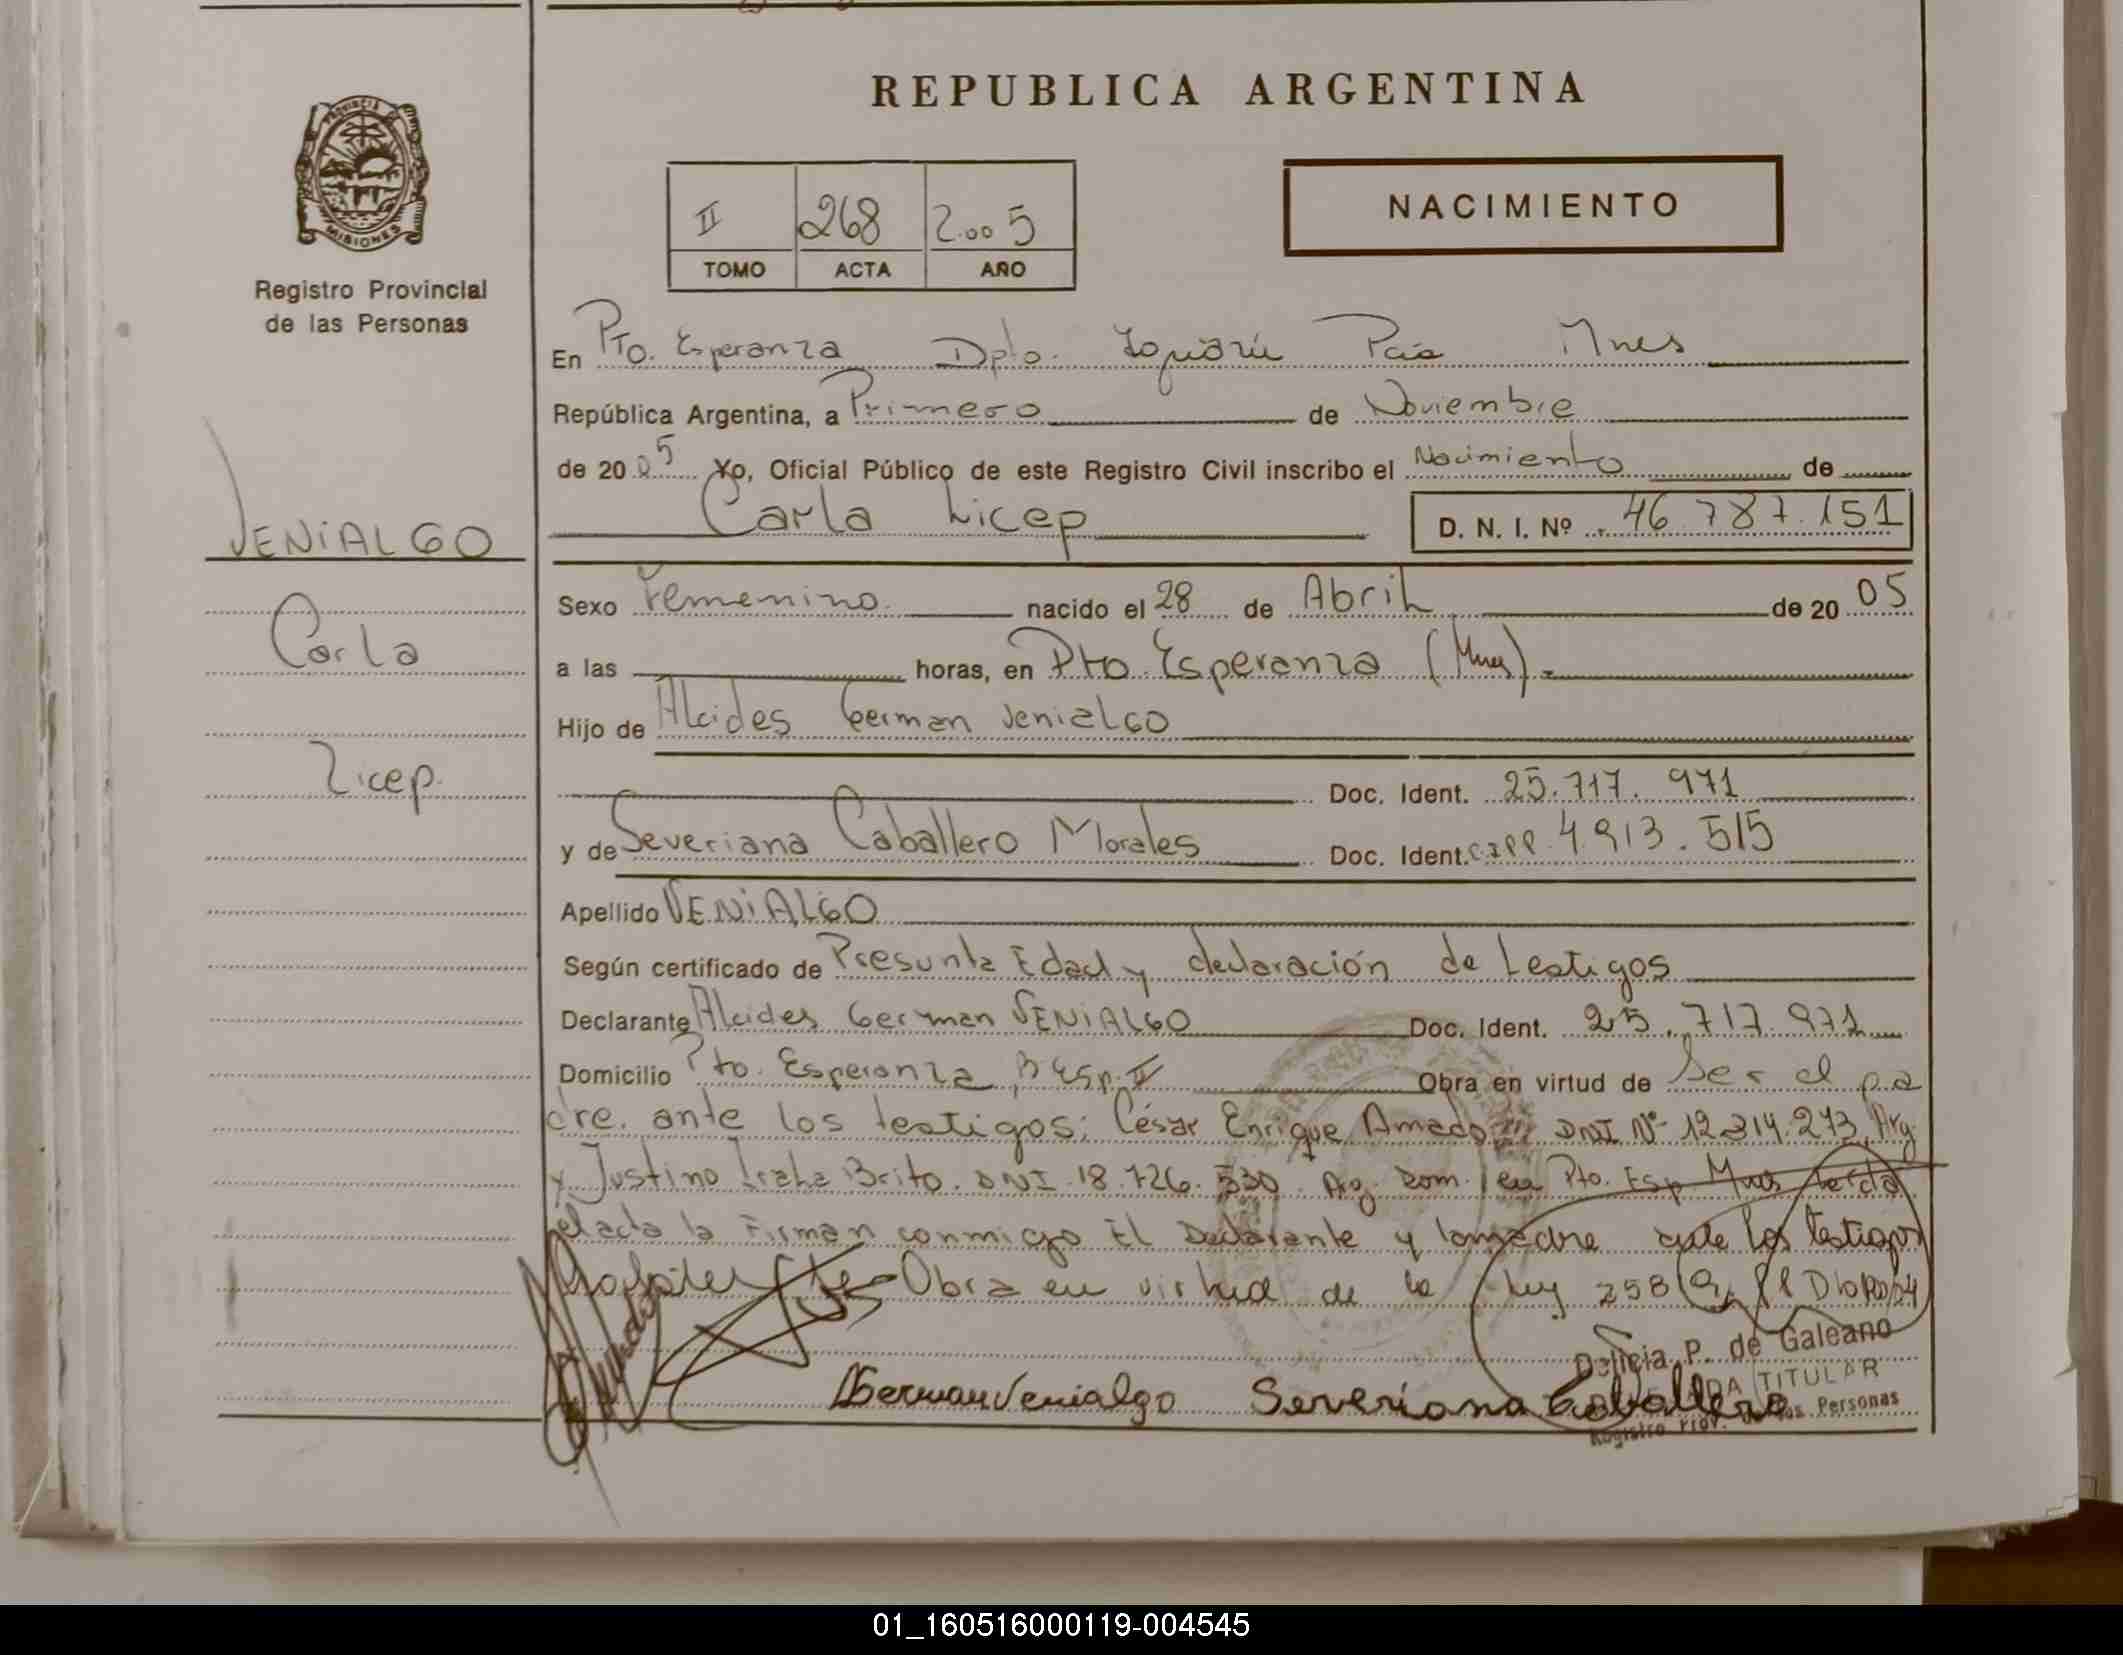 REPUBLICA ARGENTINA
PROVINCIA
MISIONES
Registro Provincial
de las Personas
II 268 2.005
TOMO ACTA AÑO
NACIMIENTO
En Pto. Esperanza Dpto. Iguazú Mnes
República Argentina, a Primero de Noviembre
de 2005 Yo, Oficial Público de este Registro Civil inscribo el Nacimiento de
Carla Licep D. N. I. Nº 46.787.151
VENIALGO
Carla
Licep.
Sexo Femenino nacido el 28 de Abril de 2005
a las horas, en Pto. Esperanza (Mnes).-
Hijo de Alcides German Venialgo
Doc. Ident. 25.717.971
y de Severiana Caballero Morales Doc. Ident. 4.913.515
Apellido VENIALGO
Según certificado de Presunta Edad y declaración de testigos
Declarante Alcides German VENIALGO Doc. Ident. 25.717.971
Domicilio Pto. Esperanza B Esp. II Obra en virtud de Ser el pa
dre. ante los testigos: César Enrique Amado DNI Nº 12.314.273 Arg
y Justino Brito. DNI 18.726.530 Arg. Dom. en Pto. Esp Mnes
la Firman conmigo El Declarante y la madre ante los testigos
Obra en virtud de la Ley
Delicia P. de Galeano
TITULAR
Registro Prov. de las Personas
German Venialgo Severiana Caballero
01_160516000119-004545